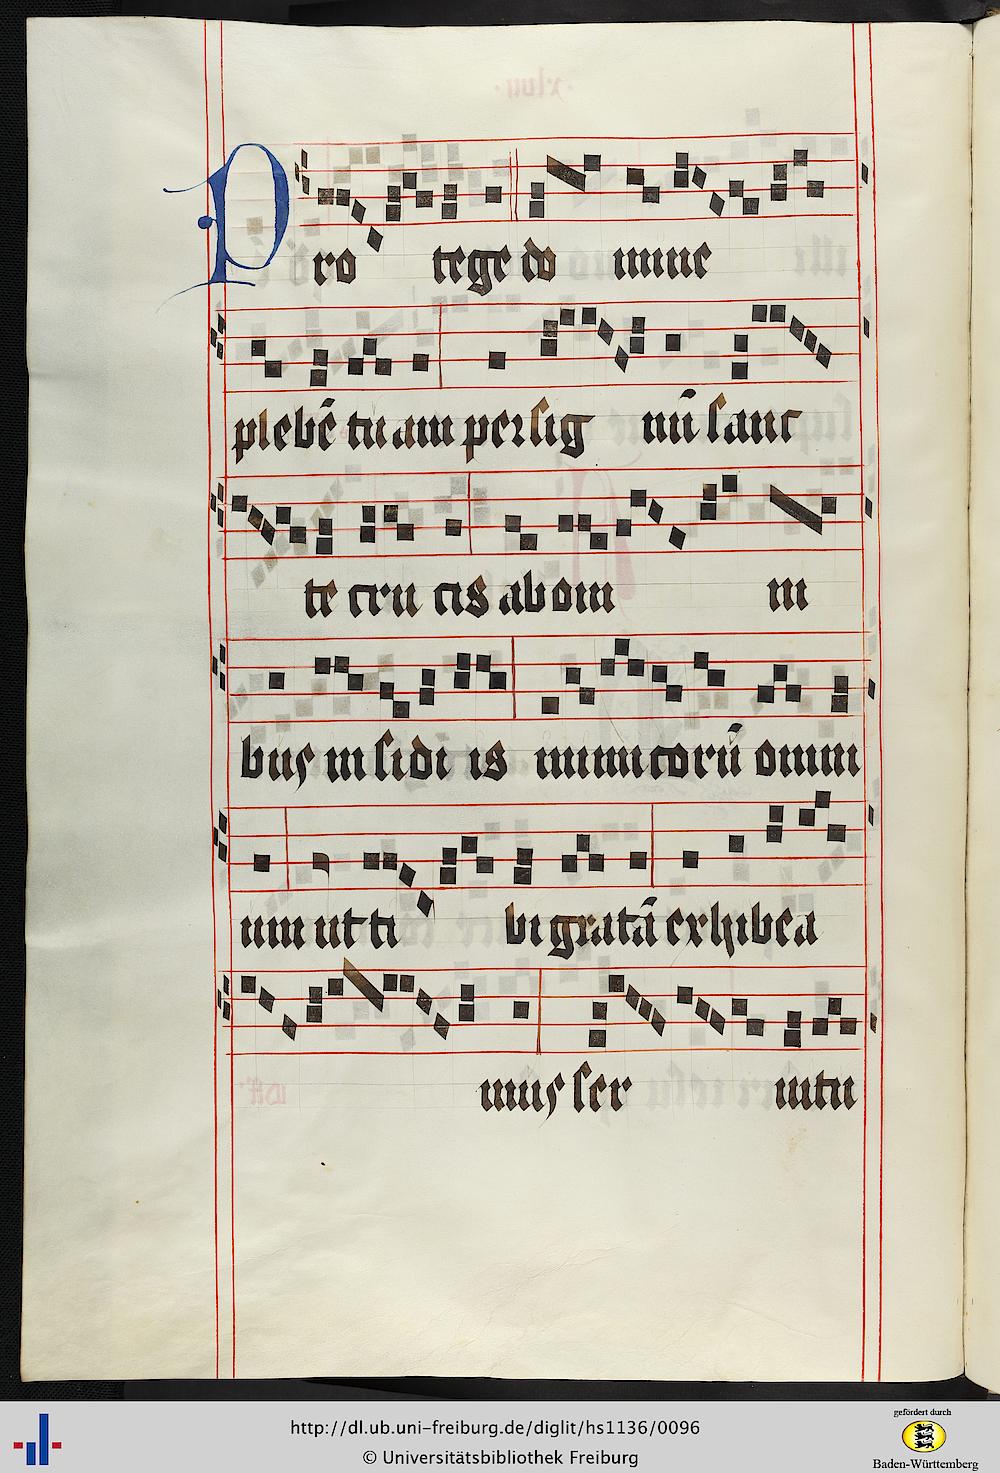 Pro tege do mine
plebē tuam per sig nū sanc
te cru cis ab om ni
bus insidi is inimicorū omni
um ut ti bi gratā exhibea
mus ser vitu
http://dl.ub.uni-freiburg.de/diglit/hs1136/0096
© Universitätsbibliothek Freiburg
gefördert durch
Baden-Württemberg